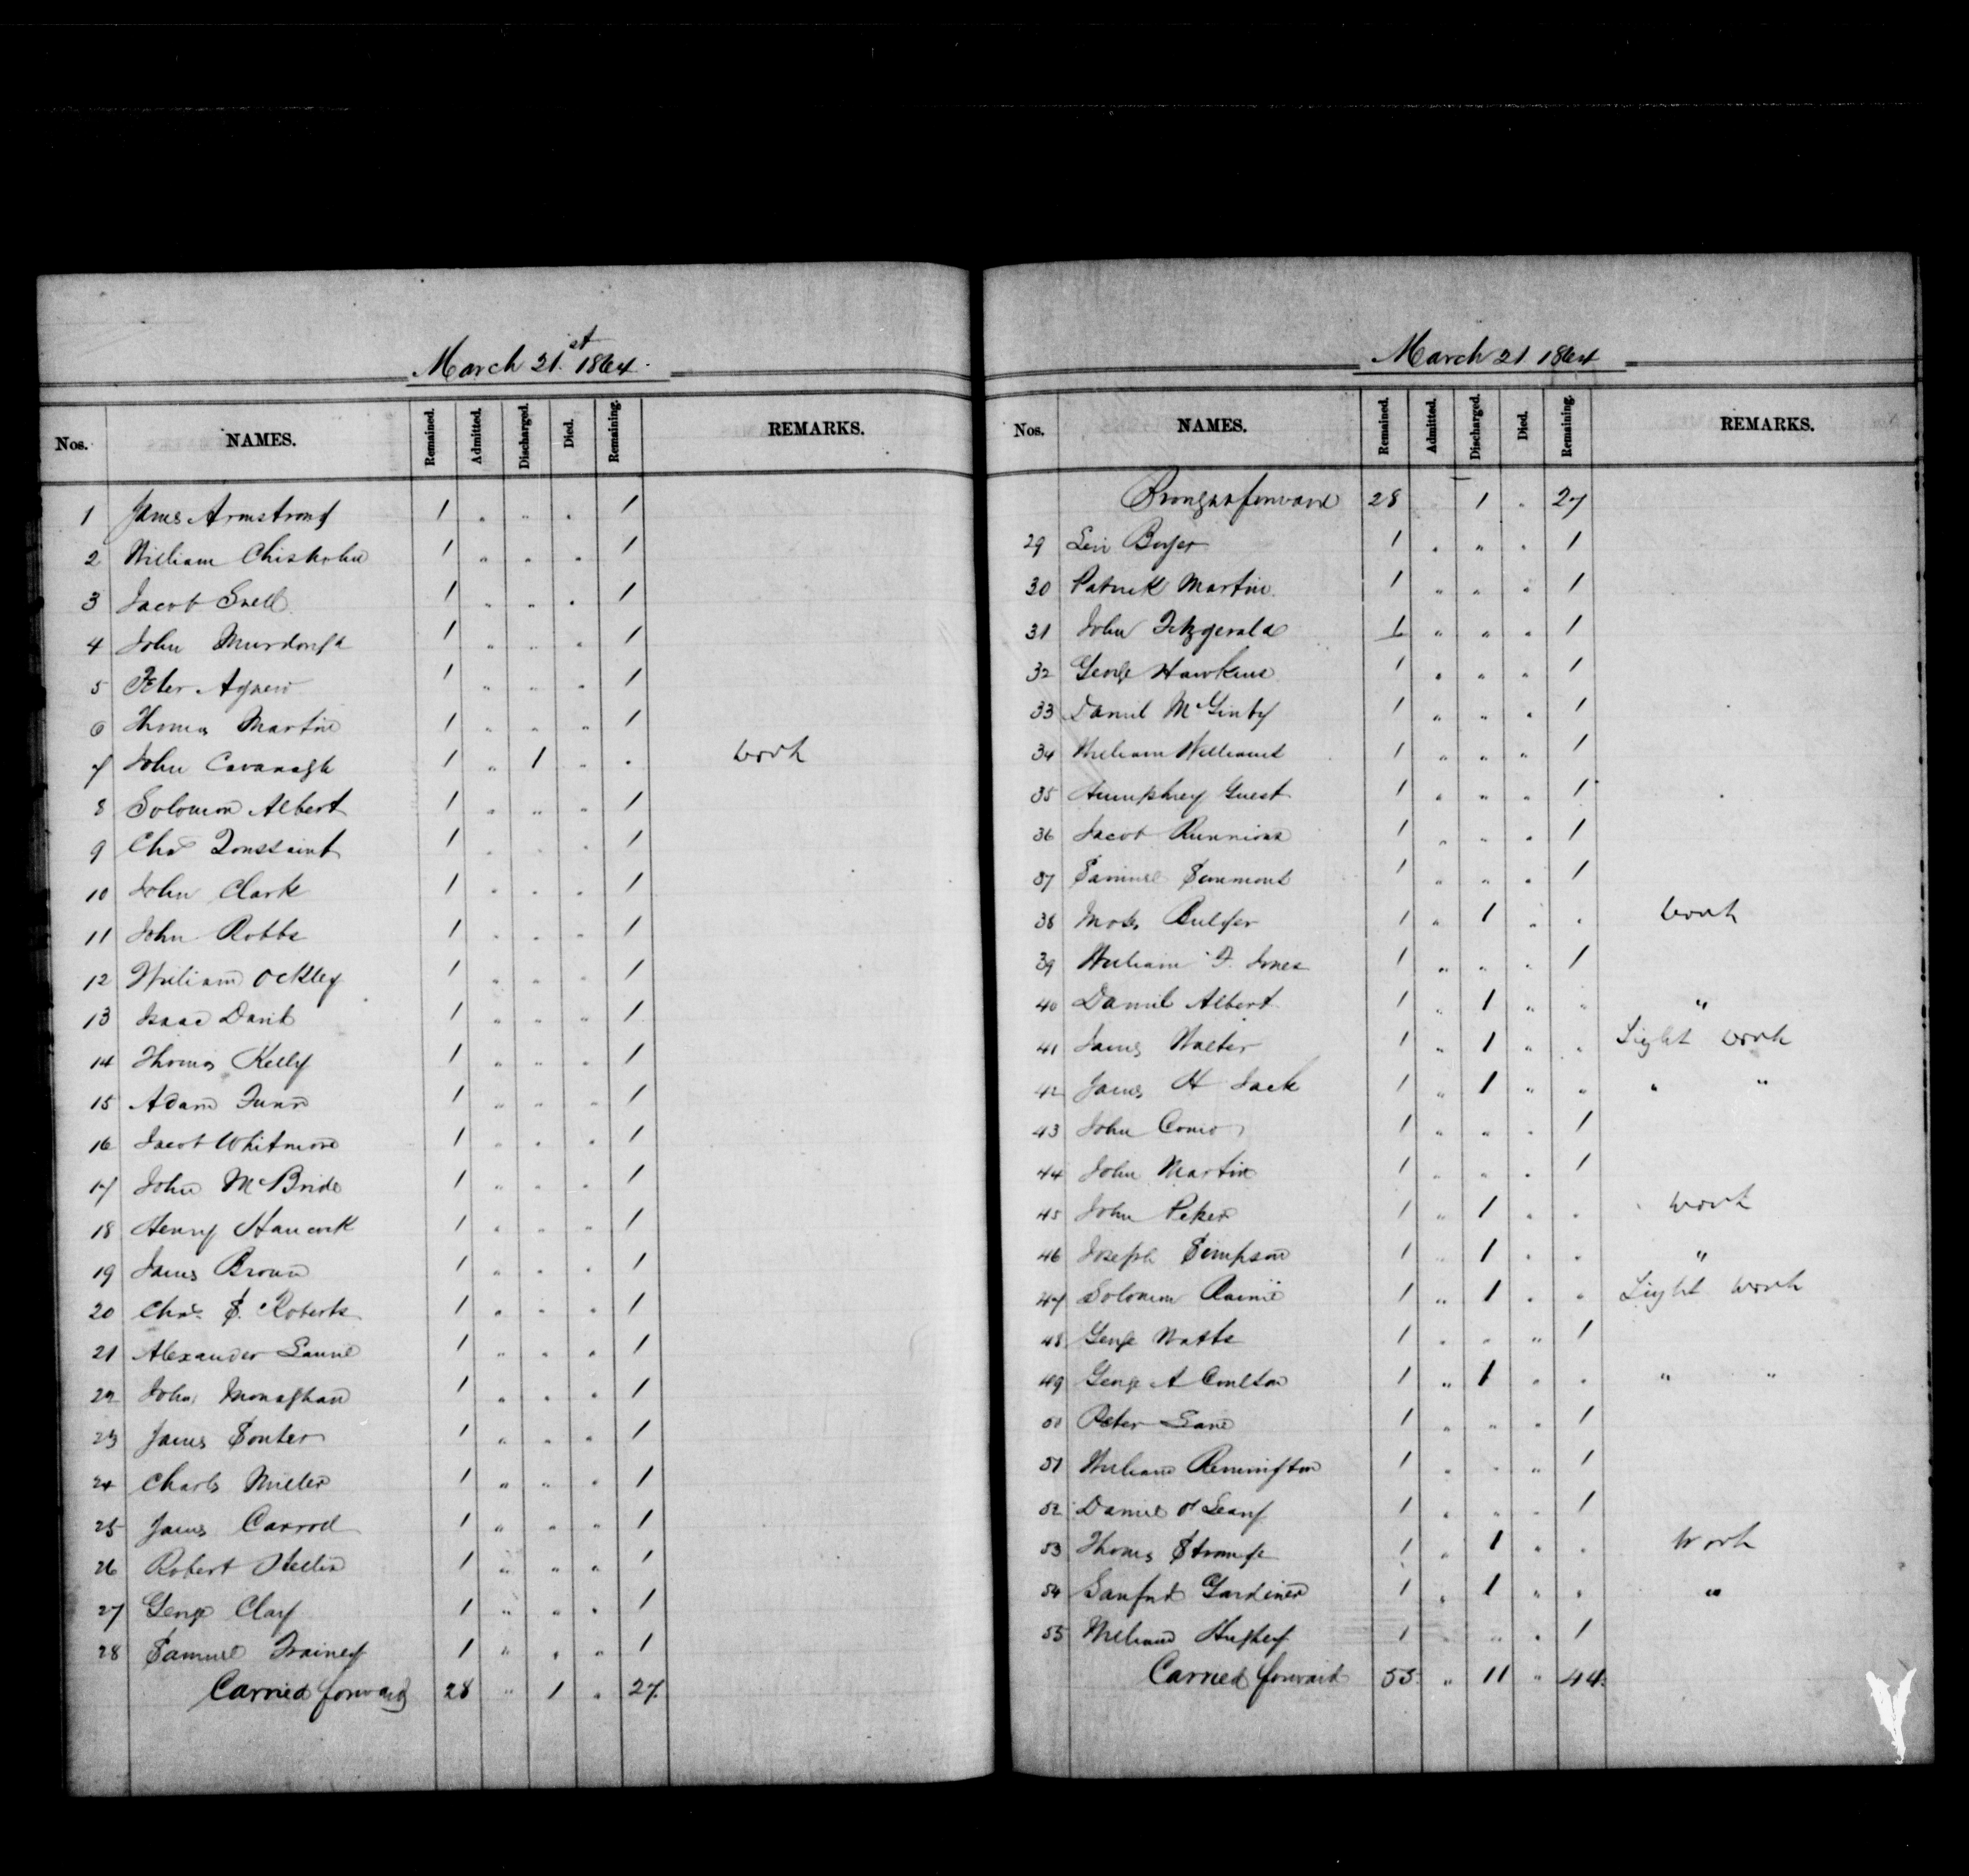 March 21st 1864.
Nos. NAMES. Remained. Admitted. Discharged. Died. Remaining. REMARKS.
1 James Armstrong 1 " " " 1
2 William Chisholm 1 " " " 1
3 Jacob Snell 1 " " " 1
4 John Murdough 1 " " " 1
5 Peter Agnew 1 " " " 1
6 Thomas Martin 1 " " " 1
7 John Cavanagh 1 " 1 " " work
8 Solomon Albert 1 " " " 1
9 Chas Toussaint 1 " " " 1
10 John Clark 1 " " " 1
11 John Robbs 1 " " " 1
12 William Ockley 1 " " " 1
13 Isaac David 1 " " " 1
14 Thomas Kelly 1 " " " 1
15 Adam Tunn 1 " " " 1
16 Jacob Whitmore 1 " " " 1
17 John McBride 1 " " " 1
18 Henry Hancock 1 " " " 1
19 James Brown 1 " " " 1
20 Chas. S. Roberts 1 " " " 1
21 Alexander 1 " " " 1
22 John Monaghan 1 " " " 1
23 James Souter 1 " " " 1
24 Charles Miller 1 " " " 1
25 James Carroll 1 " " " 1
26 Robert 1 " " " 1
27 George Clay 1 " " " 1
28 Samuel Trainey 1 " " " 1
Carried forward 28 " 1 " 27
March 21 1864
Nos. NAMES. Remained. Admitted. Discharged. Died. Remaining. REMARKS.
Brought forward 28 " 1 " 27
29 Levi Boyer 1 " " " 1
30 Patrick Martin 1 " " " 1
31 John Fitzgerald 1 " " " 1
32 George Hawkins 1 " " " 1
33 Daniel McGinty 1 " " " 1
34 William Williams 1 " " " 1
35 Humphrey Guest 1 " " " 1
36 Jacob Runnions 1 " " " 1
37 Samuel Simmons 1 " " " 1
38 Moses Bulger 1 " 1 " " work
39 William F. Jones 1 " " " 1
40 Daniel Albert 1 " 1 " " "
41 James Walter 1 " 1 " " Light work
42 James H Jack 1 " 1 " " " "
43 John 1 " " " 1
44 John Martin 1 " " " 1
45 John 1 " 1 " " work
46 Joseph Simpson 1 " 1 " " "
47 Solomon 1 " 1 " " Light work
48 George Watts 1 " " " 1
49 George A Coulton 1 " 1 " " " "
50 Peter Lane 1 " " " 1
51 William Remington 1 " " " 1
52 Daniel O'Leary 1 " " " 1
53 Thomas Strange 1 " 1 " " work
54 Sanford Gardiner 1 " 1 " " "
55 William Hughey 1 " " " 1
Carried forward 55 " 11 " 44